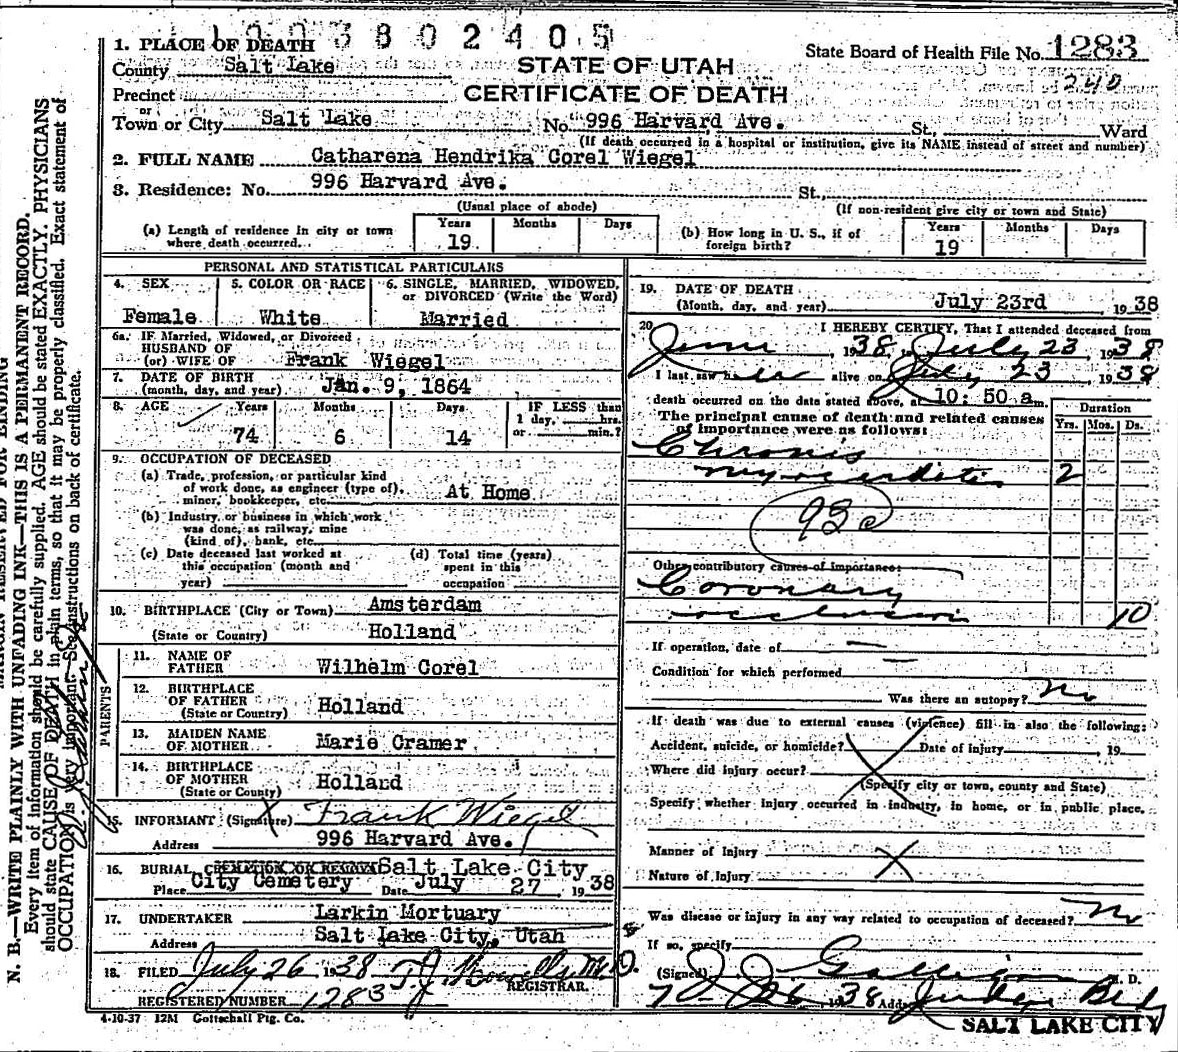 1003802405
1. PLACE OF DEATH
State Board of Health File No. 1283
County Salt Lake
STATE OF UTAH
240
Precinct
CERTIFICATE OF DEATH
or
Town or City Salt Lake No. 996 Harvard Ave. St., Ward
(If death occurred in a hospital or institution, give its NAME instead of street and number)
2. FULL NAME Catharena Hendrika Corel Wiegel
3. Residence: No. 996 Harvard Ave. St.,
(Usual place of abode) (If non-resident give city or town and State)
(a) Length of residence in city or town where death occurred... Years 19 Months Days
(b) How long in U. S., if of foreign birth? Years 19 Months Days
PERSONAL AND STATISTICAL PARTICULARS
4. SEX Female
5. COLOR OR RACE White
6. SINGLE, MARRIED, WIDOWED, or DIVORCED (Write the Word) Married
6a. IF Married, Widowed, or Divorced
HUSBAND OF
(or) WIFE OF Frank Wiegel
7. DATE OF BIRTH
(month, day, and year) Jan. 9, 1864
8. AGE Years 74 Months 6 Days 14 IF LESS than 1 day, hrs. or min.?
9. OCCUPATION OF DECEASED
(a) Trade, profession, or particular kind
of work done, as engineer (type of),
miner, bookkeeper, etc. At Home
(b) Industry or business in which work
was done, as railway, mine
(kind of), bank, etc.
(c) Date deceased last worked at
this occupation (month and
year)
(d) Total time (years)
spent in this
occupation
10. BIRTHPLACE (City or Town) Amsterdam
(State or Country) Holland
PARENTS
11. NAME OF
FATHER Wilhelm Corel
12. BIRTHPLACE
OF FATHER
(State or Country) Holland
13. MAIDEN NAME
OF MOTHER Marie Cramer
14. BIRTHPLACE
OF MOTHER
(State or County) Holland
15. INFORMANT (Signature) X Frank Wiegel
Address 996 Harvard Ave.
16. BURIAL CREMATION OR REMOVAL Salt Lake City
Place City Cemetery Date July 27 1938
17. UNDERTAKER Larkin Mortuary
Address Salt Lake City, Utah
18. FILED July 26 1938 T. J. Howells M.D.
REGISTRAR.
REGISTERED NUMBER 1283
4-10-37 12M Gottschall Ptg. Co.
19. DATE OF DEATH
(Month, day, and year) July 23rd 1938
20. I HEREBY CERTIFY, That I attended deceased from
June 1938, to July 23 1938
I last saw her alive on July 23 1938
death occurred on the date stated above, at 10:50 am.
The principal cause of death and related causes
of importance were as follows:
Duration
Yrs. Mos. Ds.
Chronic
myocarditis 2
93c
Other contributory causes of importance:
Coronary
occlusion 10
If operation, date of
Condition for which performed
Was there an autopsy? No
If death was due to external causes (violence) fill in also the following:
Accident, suicide, or homicide? Date of injury 19
Where did injury occur?
(Specify city or town, county and State)
Specify whether injury occurred in industry, in home, or in public place.
Manner of Injury
Nature of Injury
Was disease or injury in any way related to occupation of deceased? No
If so, specify
(Signed) J J Galligan M. D.
7-26 1938 Add. Judge Bldg
SALT LAKE CITY
MARGIN RESERVED FOR BINDING
N. B.—WRITE PLAINLY WITH UNFADING INK—THIS IS A PERMANENT RECORD.
Every item of information should be carefully supplied. AGE should be stated EXACTLY. PHYSICIANS
should state CAUSE OF DEATH in plain terms, so that it may be properly classified. Exact statement of
OCCUPATION is very important. See instructions on back of certificate.